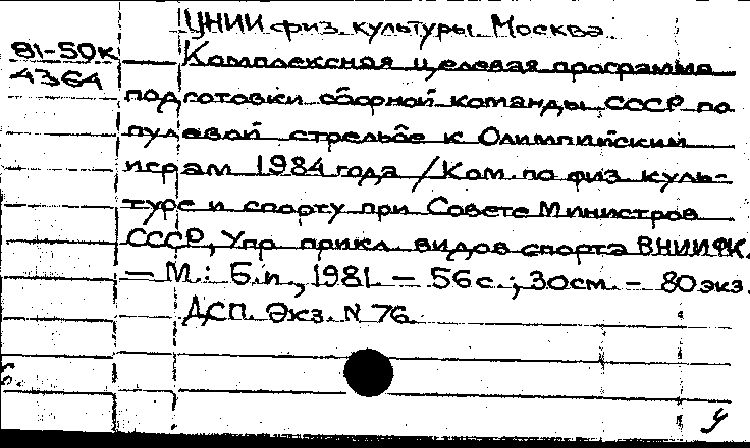 ЦНИИ физ. культуры. Москва.
81-50к
4364
Комплексная целевая программа
подготовки сборной команды СССР по
пулевой стрельбе к Олимпийским
играм 1984 года / Ком. по физ. куль-
туре и спорту при Совете Министров
СССР, Упр. прикл. видов спорта ВНИИФК.
— М.: Б.и., 1981. — 56 с.; 30 см. — 80 экз.
ДСП. Экз. N 76.